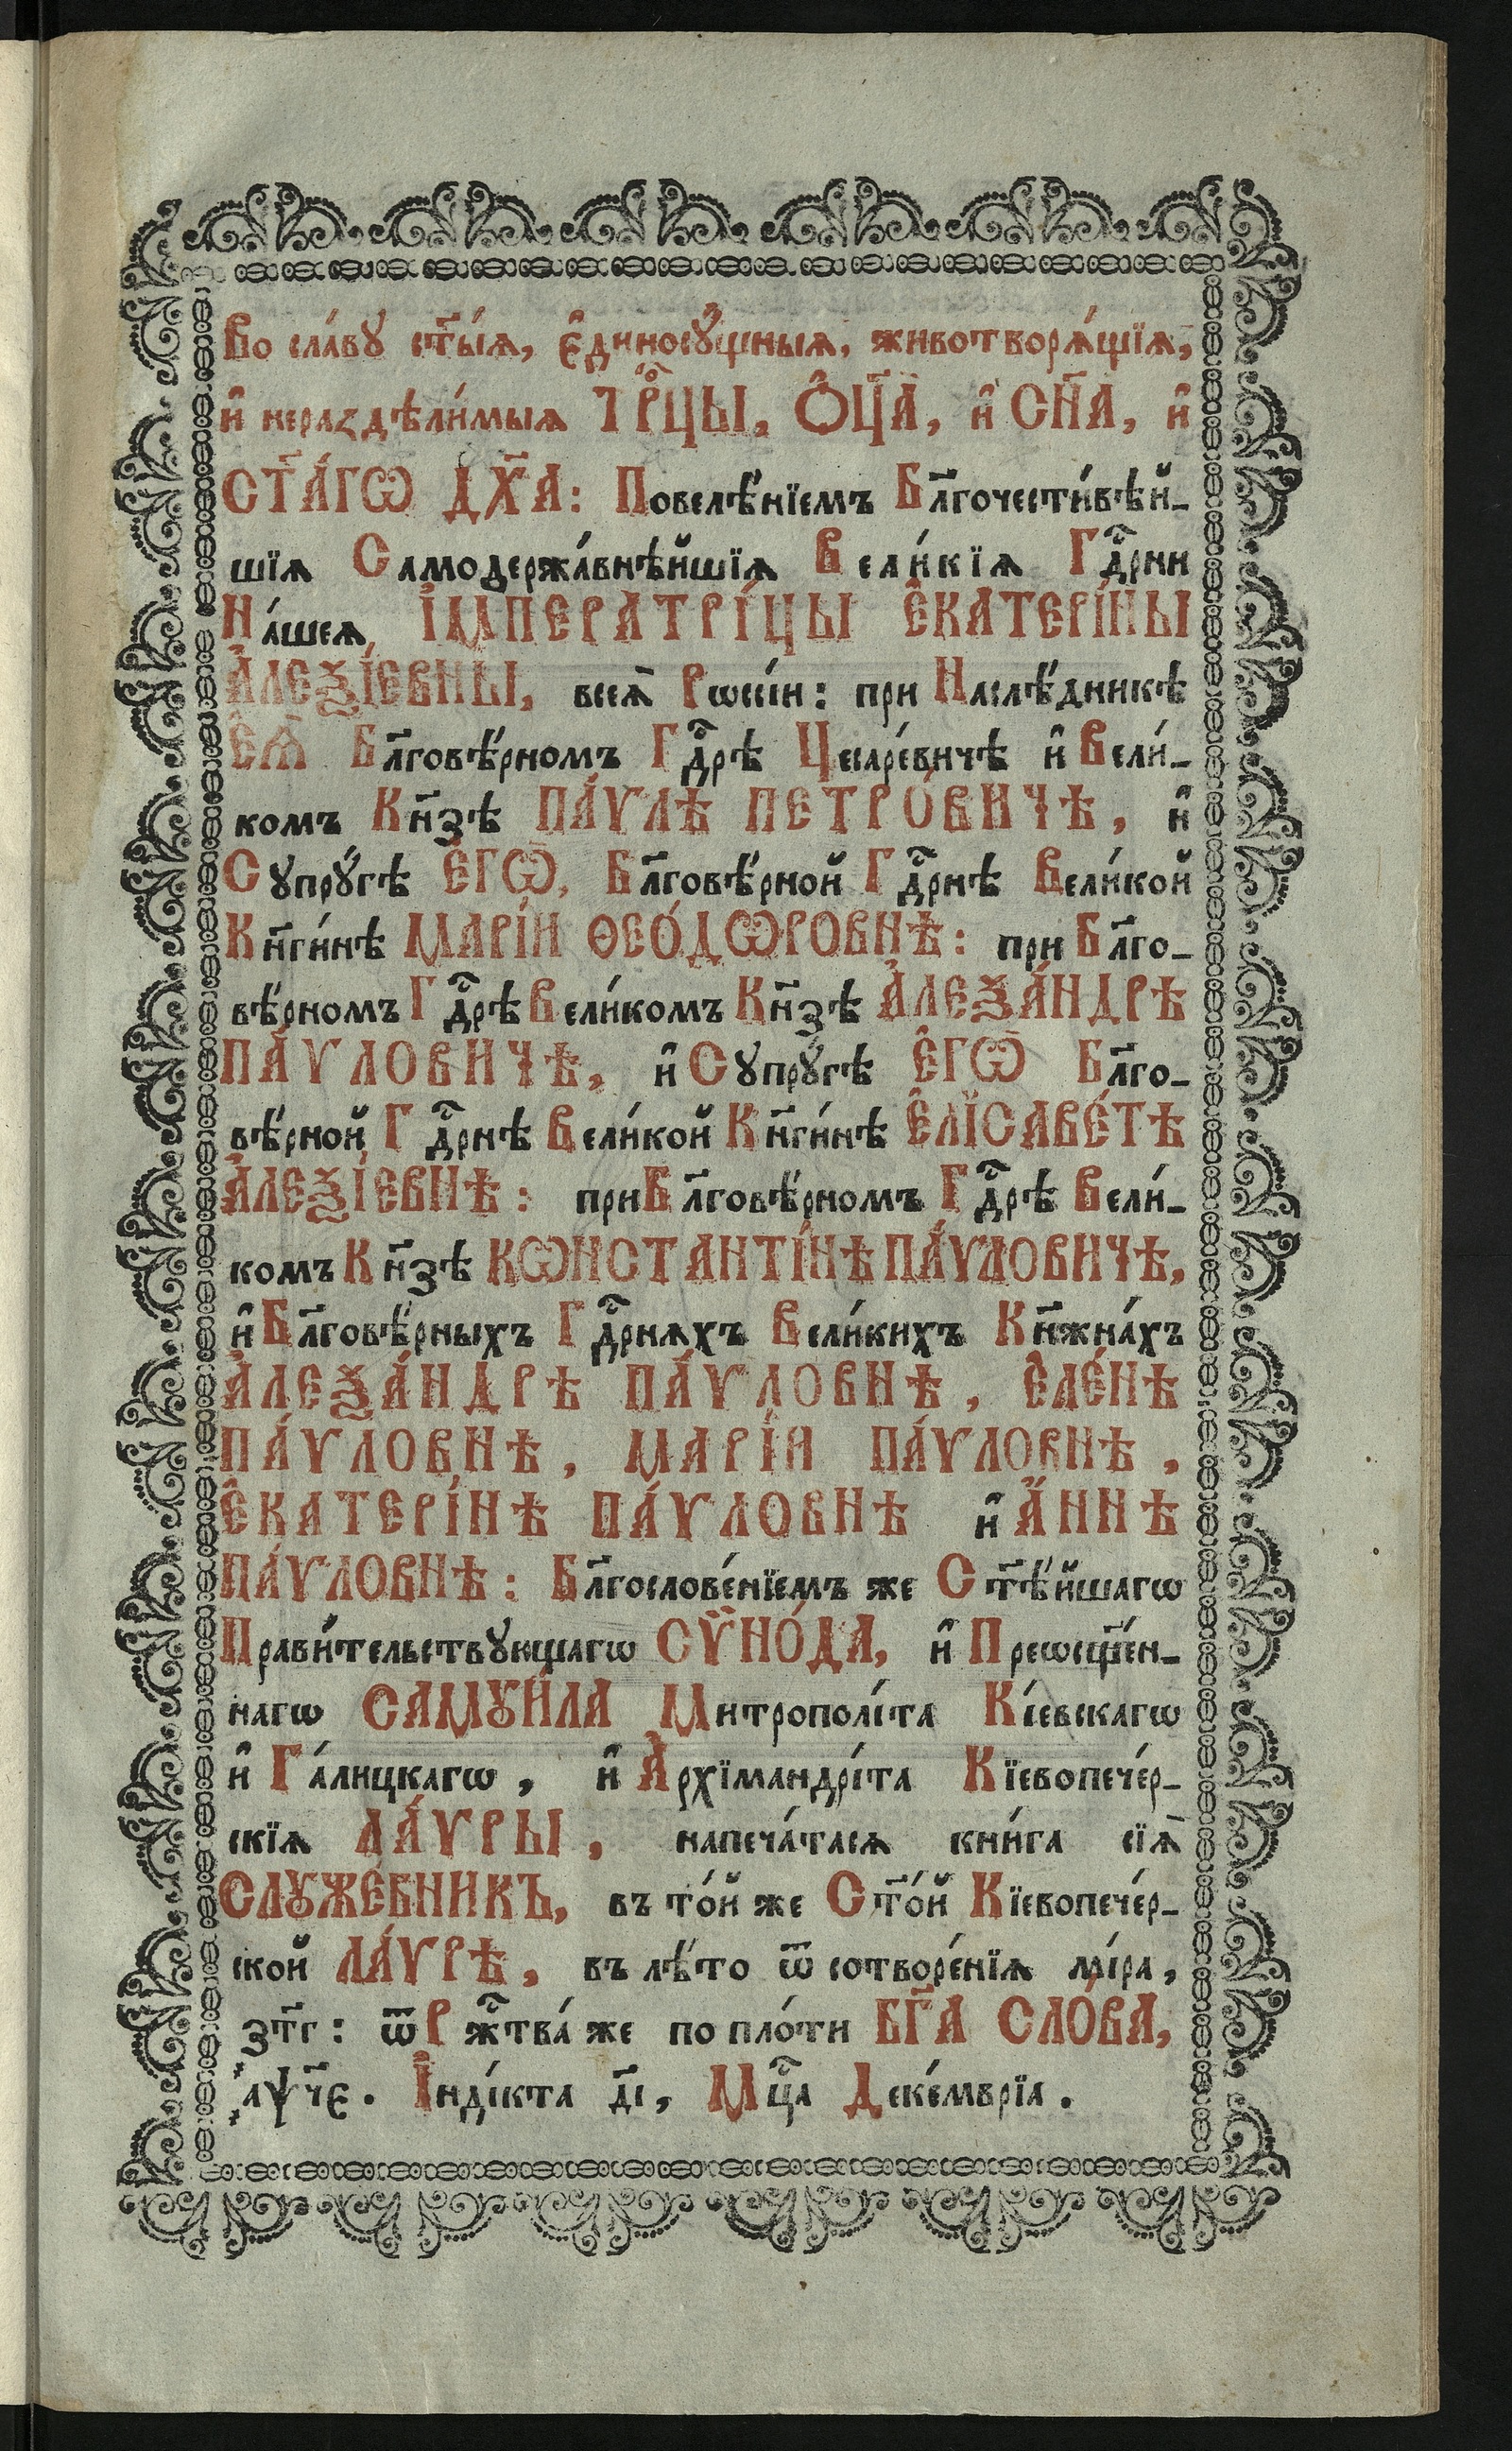 Во сла́вꙋ ст҃ы́ѧ, є҆диносꙋ́щныѧ, животворѧ́щїѧ,
и҆ нераздѣли́мыѧ ТРⷪ҇ЦЫ, Ѻ҆Ц҃А̀, и҆ СН҃А, и҆
СТ҃А́ГѠ ДХ҃А: Повелѣ́нїемъ Бл҃гочести́вѣй-
шїѧ Самодержа́внѣйшїѧ Вели́кїѧ Гдⷭ҇рни
На́шеѧ, І҆МПЕРАТРІ́ЦЫ Е҆КАТЕРІ́НЫ
А҆ЛЕѮІ́ЕВНЫ, всеѧ̀ Рѡссі́и: при Наслѣ́дникѣ
Е҆Ѧ̀ Бл҃говѣ́рномъ Гдⷭ҇рѣ Цесаре́вичѣ и҆ Вели́-
комъ Кн҃зѣ ПА́ѴЛѢ ПЕТРО́ВИЧѢ, и҆
Сꙋпрꙋ́гѣ Е҆ГѠ̀, Бл҃говѣ́рной Гдⷭ҇рнѣ Вели́кой
Кн҃ги́нѣ МАРІ́И ѲЕО́ДѠРОВНѢ: при Бл҃го-
вѣ́рномъ Гдⷭ҇рѣ Вели́комъ Кн҃зѣ А҆ЛЕѮА́НДРѢ
ПА́ѴЛОВИЧѢ, и҆ Сꙋпрꙋ́гѣ Е҆ГѠ̀ Бл҃го-
вѣ́рной Гдⷭ҇рнѣ Вели́кой Кн҃ги́нѣ Е҆ЛІСАВЕ́ТѢ
А҆ЛЕѮІ́ЕВНѢ: при Бл҃говѣ́рномъ Гдⷭ҇рѣ Вели́-
комъ Кн҃зѣ КѠНСТАНТІ́НѢ ПА́ѴЛОВИЧѢ,
и҆ Бл҃говѣ́рныхъ Гдⷭ҇рнѧхъ Вели́кихъ Кн҃жна́хъ
А҆ЛЕѮА́НДРѢ ПА́ѴЛОВНѢ, Е҆ЛЕ́НѢ
ПА́ѴЛОВНѢ, МАРІ́И ПА́ѴЛОВНѢ,
Е҆КАТЕРІ́НѢ ПА́ѴЛОВНѢ и҆ А҆́ННѢ
ПА́ѴЛОВНѢ: Бл҃гослове́нїемъ же Ст҃ѣ́йшагѡ
Прави́тельствꙋющагѡ СѴНО́ДА, и҆ Преѡсщ҃е́н-
нагѡ САМꙊИ́ЛА Митрополі́та Кі́евскагѡ
и҆ Га́лицкагѡ, и҆ А҆рхїмандрі́та Кїевопече́р-
скїѧ ЛА́ѴРЫ, напеча́тасѧ кни́га сїѧ̀
СЛꙊЖЕ́БНИКЪ, въ то́й же Ст҃о́й Кїевопече́р-
ской ЛА́ѴРѢ, въ лѣ́то ѿ сотворе́нїѧ мі́ра,
зт҃г: ѿ Ржⷭ҇тва́ же по пло́ти БГ҃А СЛО́ВА,
҂аѱч҃є. І҆нді́кта д҃і, Мцⷭ҇а Деке́мврїа.